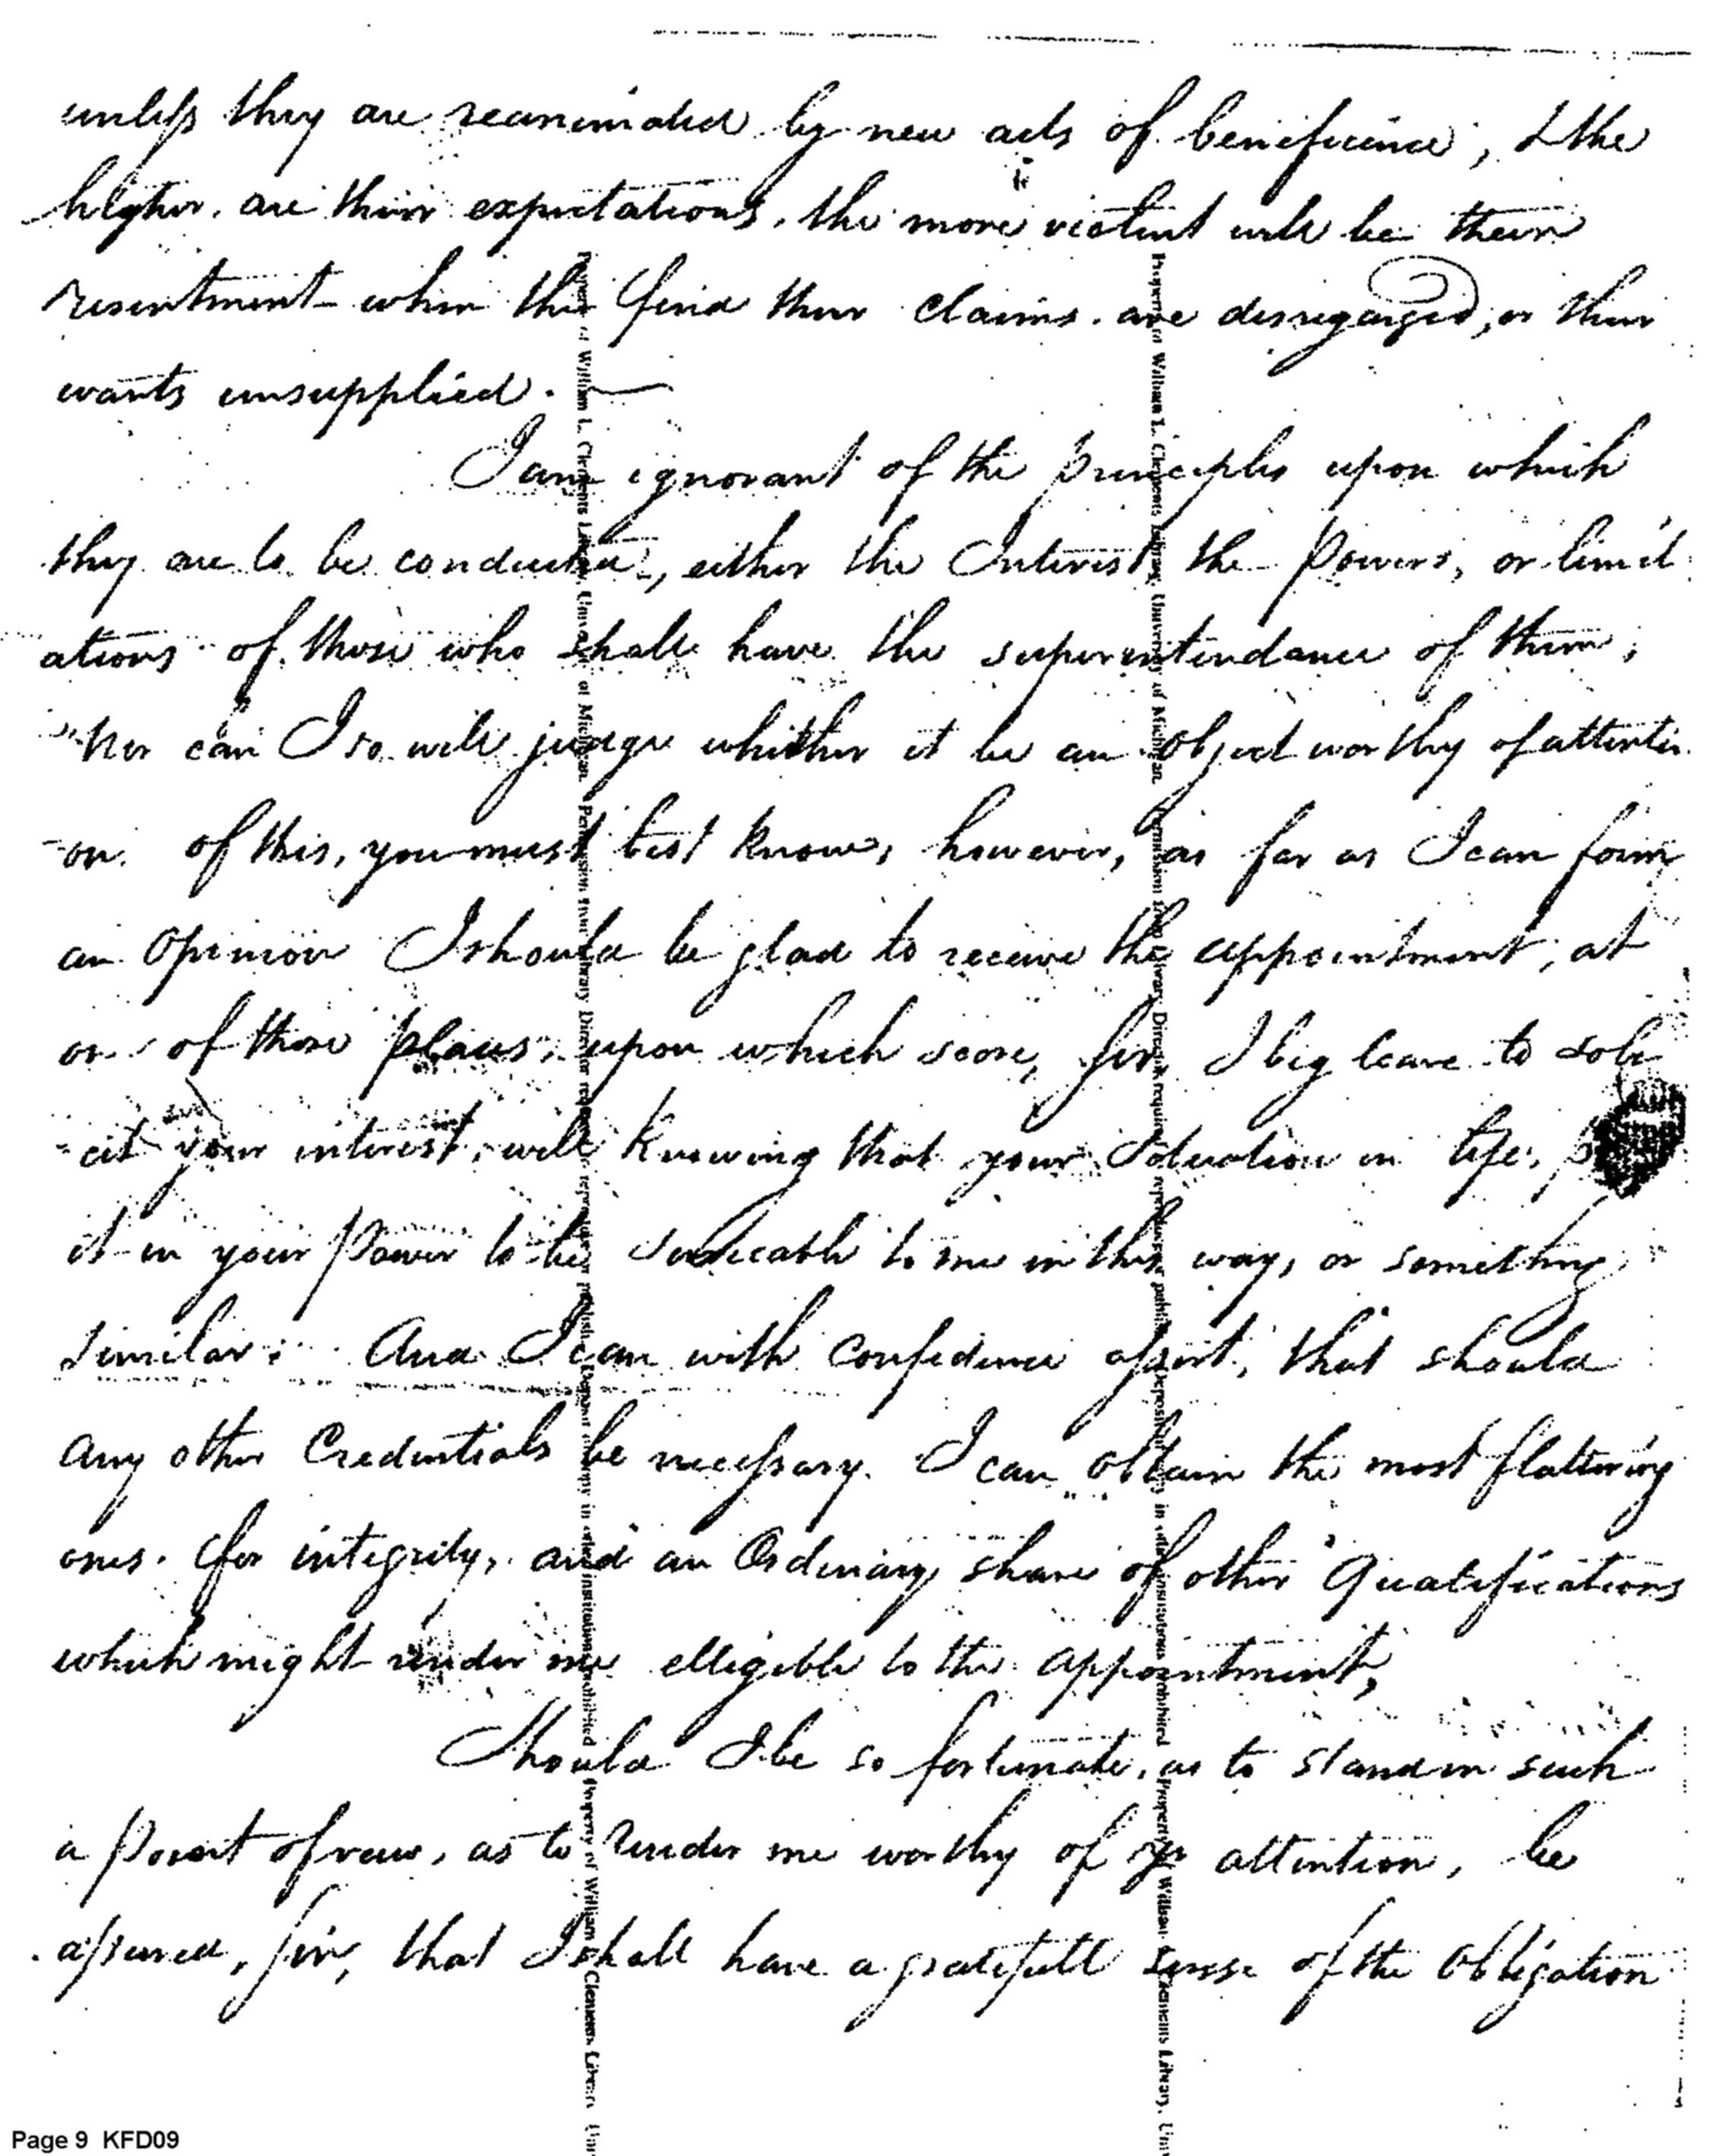 unless they are reanimated by new acts of beneficence, & the
higher are their expectations, the more violent will be their
resentment when the find their claims are disregarged, or their
wants unsupplied. —
I am ignorant of the principles upon which
they are to be conducted, either the Interest, the Powers, or limit
ations of those who shall have the superintendance of them;
nor can I so well judge whether it be an object worthy of attenti
-on. of this, you must best know, however, as far as I can form
an Opinion I should be glad to receive the appointment, at
one of those places, upon which score, Sir, I beg leave to soli
-cit your interest, well knowing that your Situation in life,
it in your Power to be serviceable to me in this way, or something
similar. And I can with confidence assert, that should
any other Credentials be necessary. I can obtain the most flattering
ones. for integrity, and an Ordinary share of other Qualifications
which might render me elligible to the appointment,
Should I be so fortunate, as to stand in such
a Point of view, as to render me worthy of yr attention, be
assured, Sir, that I shall have a gratefull sense of the Obligation
Property of William L. Clements Library, University of Michigan. Permission from Library Director required to reproduce or publish. Deposit of copy in other institutions prohibited. Property of William L. Clements Library, Uni
Property of William L. Clements Library, University of Michigan. Permission from Library Director required to reproduce or publish. Depositing copy in other institutions prohibited. Property of William L. Clements Library, Uni
Page 9 KFD09